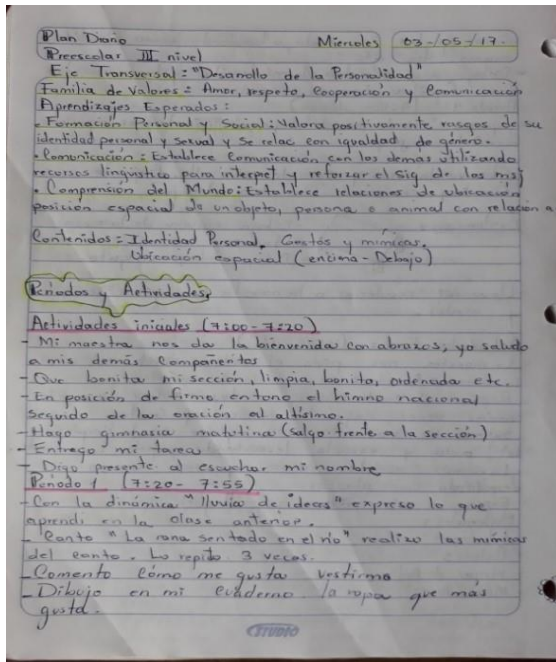 Plan Diario Miercoles 03-/05-/17.
Preescolar III nivel
Eje Transversal: "Desarrollo de la Personalidad"
Familia de Valores: Amor, respeto, Cooperación y Comunicación
Aprendizajes Esperados:
• Formación Personal y Social: Valora positivamente rasgos de su
identidad personal y sexual y se relac con igualdad de género.
• Comunicación: Establece Comunicación con los demas utilizando
recursos linguistico para interpret y reforzar el sig de los msj
• Comprensión del Mundo: Establece relaciones de ubicación
posición espacial de un objeto, persona o animal con relación a
Contenidos = Identidad Personal, Gestos y mímicas.
Ubicación espacial (encima - Debajo)
Periodos y Actividades,
Actividades iniciales (7:00 - 7:20)
- Mi maestra nos da la bienvenida con abrazos, yo saludo
a mis demás Compañeritos
- Que bonita mi sección, limpia, bonita, ordenada etc.
- En posición de firme entono el himno nacional
seguido de la oración al altísimo.
- Hago gimnasia matutina (salgo frente a la sección)
- Entrego mi tarea
- Digo presente al escuchar mi nombre
Periodo 1 (7:20 - 7:55)
- Con la dinámica "lluvia de ideas" expreso lo que
aprendi en la clase anterior.
- Canto "La rana sentado en el río" realizo las mímicas
del canto. Lo repito 3 veces.
- Comento cómo me gusta vestirme
- Dibujo en mi Cuaderno la ropa que más
gusta.
STUDIO